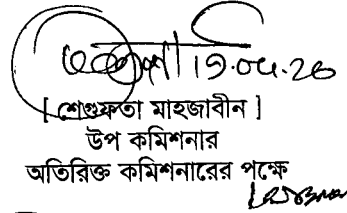 [ শেগুফতা মাহজাবীন ]
উপ কমিশনার
অতিরিক্ত কমিশনারের পক্ষে